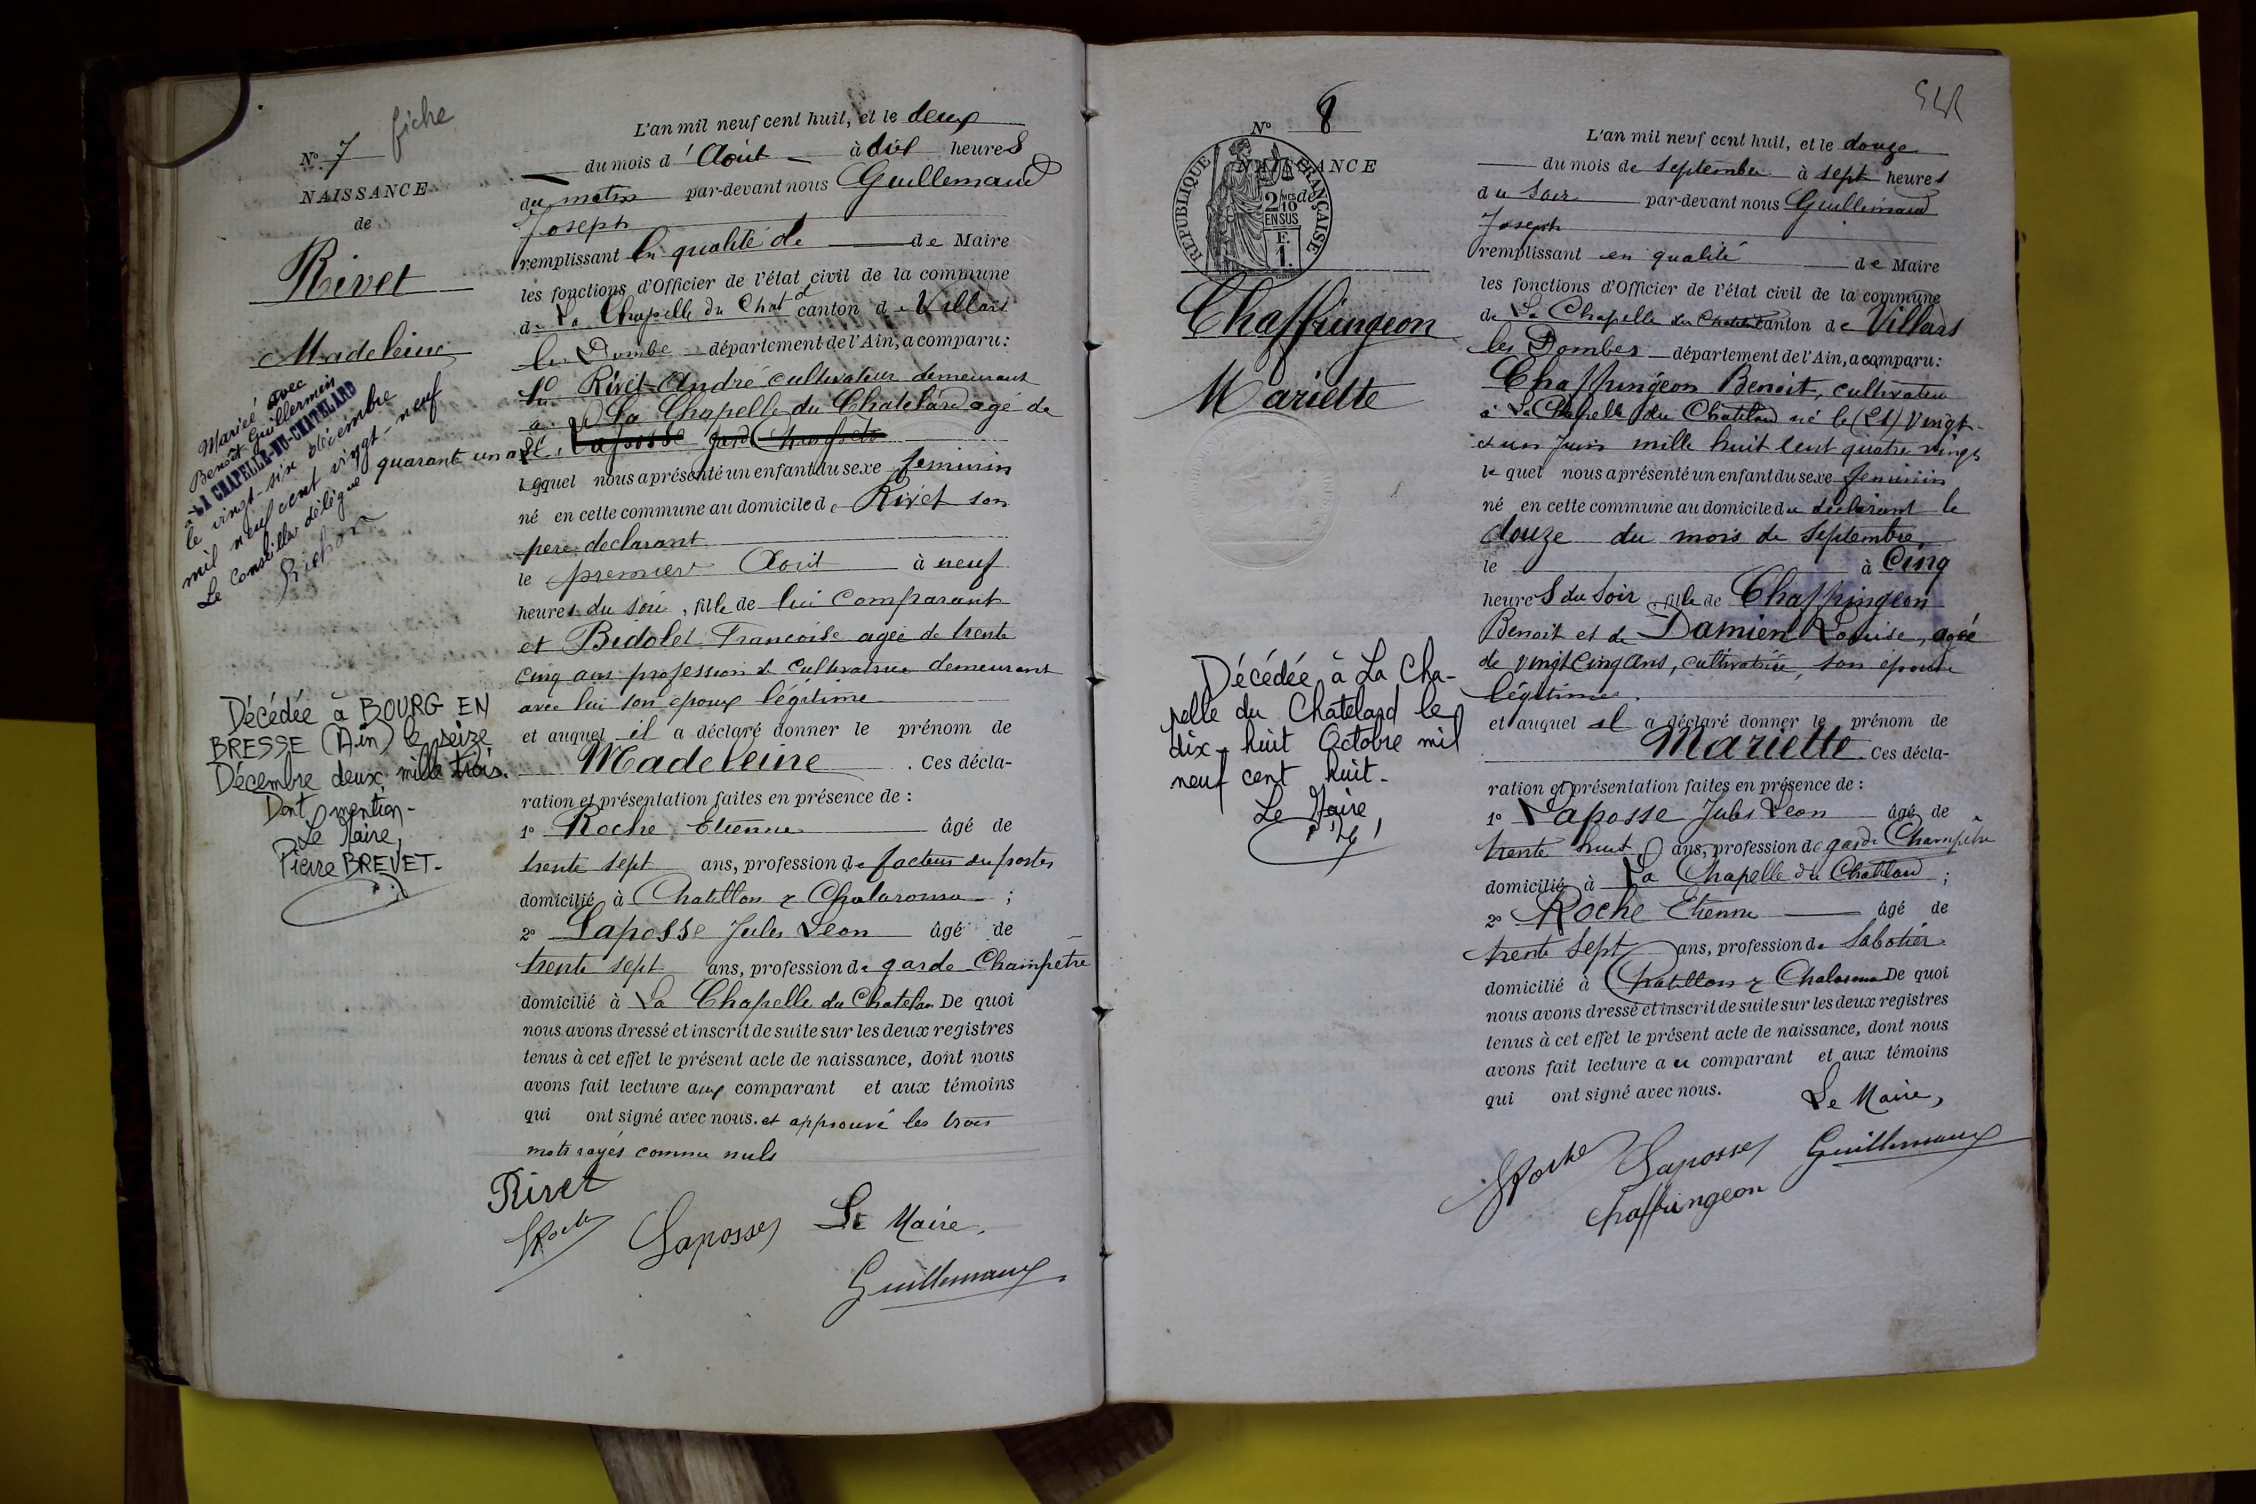 fiche
N° 7
NAISSANCE
de
Rivet
Madeleine
Mariée avec
Benoît Guillermin
à LA CHAPELLE-DU-CHATELARD
le vingt-six décembre
mil neuf cent vingt-neuf
Le Conseiller délégué
Décédée à BOURG EN
BRESSE (Ain) le seize
Décembre deux mille trois.
Dont mention-
Le Maire,
Pierre BREVET-
L'an mil neuf cent huit, et le deux
du mois d'Aout à dix heures
du matin par-devant nous Guillemaud
Joseph
remplissant en qualité de de Maire
les fonctions d'Officier de l'état civil de la commune
de La Chapelle du Chatd canton de Villars
les Dombe département de l'Ain, a comparu:
Rivet André cultivateur demeurant
a La Chapelle du Chatelard agé de
quarante un ans, Laposse garde Champetre
lequel nous a présenté un enfant du sexe feminin
né en cette commune au domicile de Rivet son
pere declarant
le premier Aout à neuf
heures du soir, fille de lui comparant
et Bidolet Francoise agée de trente
cinq ans profession de cultivatrice demeurant
avec lui son epoux légitime
et auquel il a déclaré donner le prénom de
Madeleine . Ces décla-
ration et présentation faites en présence de :
1° Roche Etienne âgé de
trente sept ans, profession de facteur des postes
domicilié à Chatillon s Chalaronne ;
2° Laposse Jules Leon âgé de
trente sept ans, profession de garde Champêtre
domicilié à La Chapelle du Chatelar De quoi
nous avons dressé et inscrit de suite sur les deux registres
tenus à cet effet le présent acte de naissance, dont nous
avons fait lecture aux comparant et aux témoins
qui ont signé avec nous. et approuvé les trois
mots rayés comme nuls
Rivet
Roche Laposse Le Maire,
Guillemaud
N° 8
NAISSANCE
de
REPUBLIQUE FRANÇAISE
2/10 EN SUS
F. 1.
Chaffringeon
Mariette
Décédée à La Cha-
pelle du Châtelard le
dix-huit Octobre mil
neuf cent huit-
Le Maire
L'an mil neuf cent huit, et le douze
du mois de septembre à sept heures
du soir par-devant nous Guillemaud
Joseph
remplissant en qualité de Maire
les fonctions d'Officier de l'état civil de la commune
de La Chapelle du Chatelard canton de Villars
les Dombes département de l'Ain, a comparu:
Chaffringeon Benoit, cultivateur
à La Chapelle du Châtelard né le (21) Vingt-
et un Juin mille huit cent quatre vingt
lequel nous a présenté un enfant du sexe feminin
né en cette commune au domicile du déclarant le
douze du mois de Septembre
le à Cinq
heures du soir, fille de Chaffringeon
Benoit et de Damien Louise, agée
de vingt cinq ans, cultivatrice, son épouse
légitime.
et auquel il a déclaré donner le prénom de
Mariette . Ces décla-
ration et présentation faites en présence de :
1° Laposse Jules Leon âgé de
trente huit ans, profession de garde Champêtre
domicilié à La Chapelle du Chatelard ;
2° Roche Etienne âgé de
trente sept ans, profession de Sabotier
domicilié à Chatillon s Chalaronne De quoi
nous avons dressé et inscrit de suite sur les deux registres
tenus à cet effet le présent acte de naissance, dont nous
avons fait lecture au comparant et aux témoins
qui ont signé avec nous.
Le Maire,
Roche Laposse Guillemaud
Chaffringeon